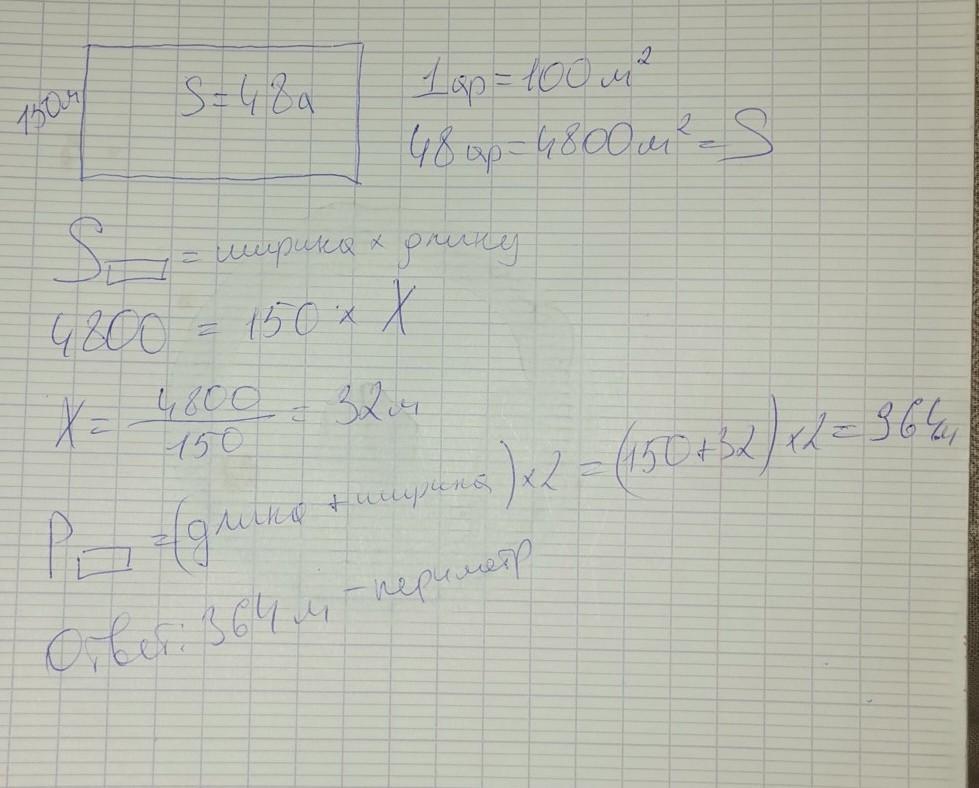 150м
S=48а
1ар=100м²
48ар=4800м²=S
S▭=ширина×длину
4800=150×X
X=4800/150=32м
P▭=(длина+ширина)×2=(150+32)×2=364м
Ответ: 364м-периметр